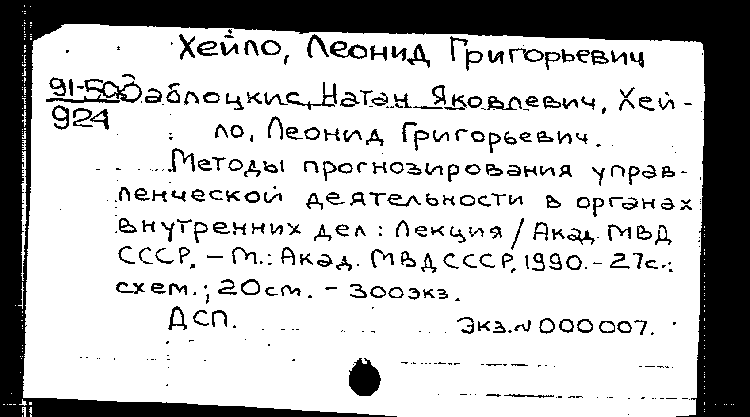 Хейло, Леонид Григорьевич
91-503 Заблоцкис, Натан Яковлевич, Хей-
924
ло, Леонид Григорьевич.
Методы прогнозирования управ-
ленческой деятельности в органах
внутренних дел : Лекция / Акад. МВД
СССР. – М. : Акад. МВД СССР, 1990. – 27с. :
схем. ; 20см. – 300экз.
ДСП.
Экз.N 000007.